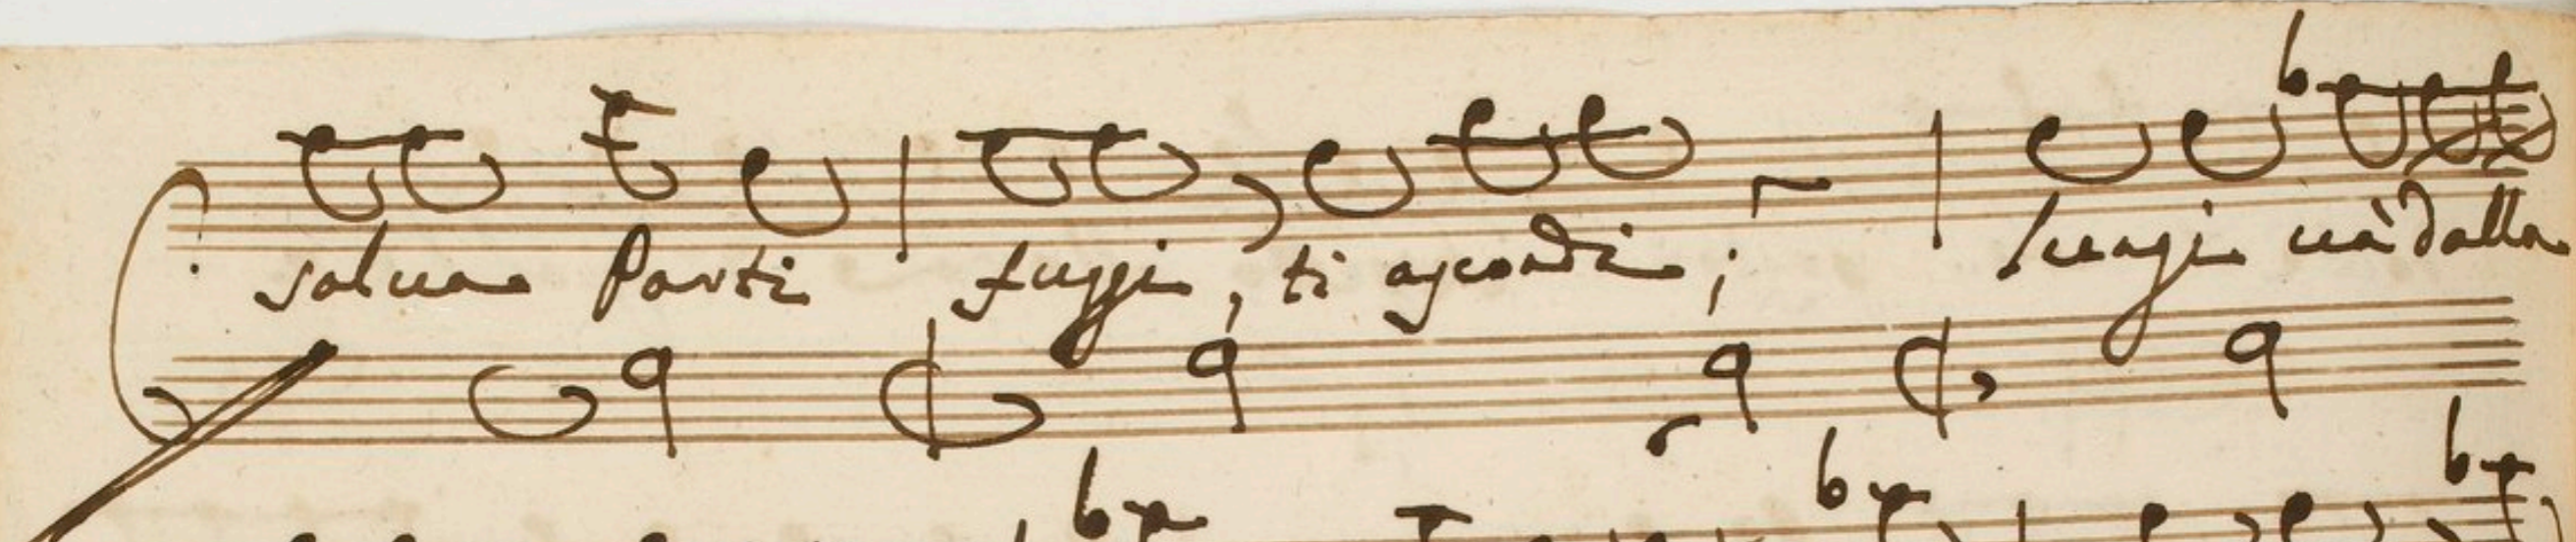 salua Parti fuggi, ti ascondi; lungi uà dalla